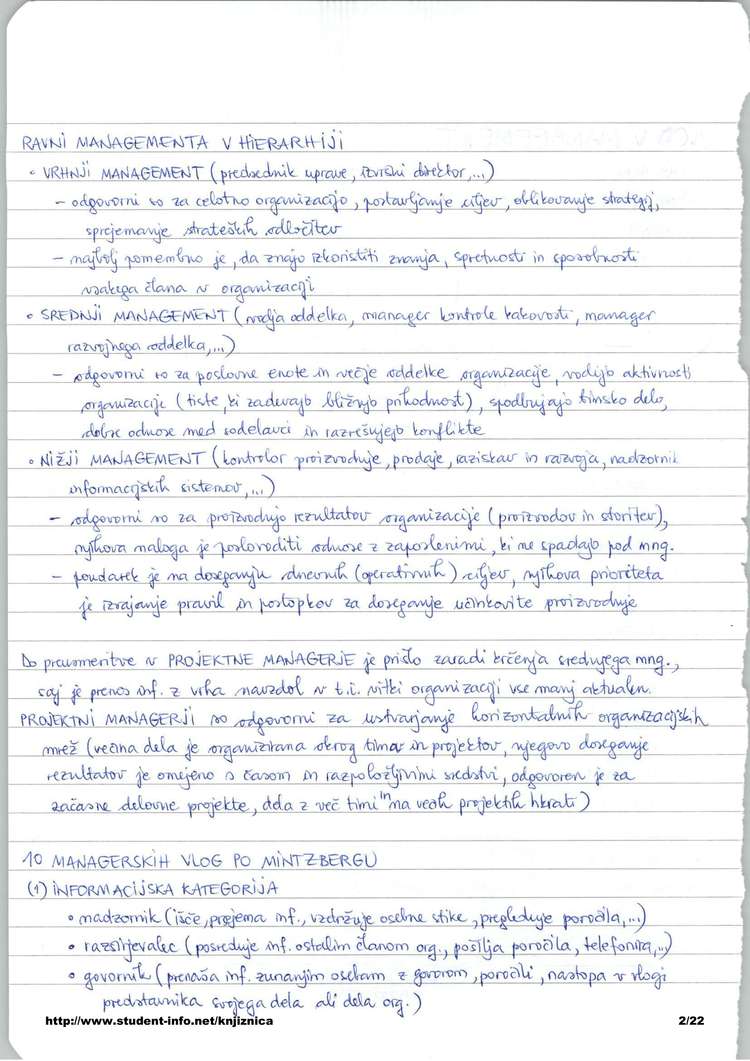 RAVNI MANAGEMENTA V HIERARHIJI
• VRHNJI MANAGEMENT (predsednik uprave, izvršni direktor,...)
– odgovorni so za celotno organizacijo, postavljanje ciljev, oblikovanje strategij,
sprejemanje strateških odločitev
– najbolj pomembno je, da znajo izkoristiti znanja, spretnosti in sposobnosti
vsakega člana v organizaciji
• SREDNJI MANAGEMENT (vodja oddelka, manager kontrole kakovosti, manager
razvojnega oddelka,...)
– odgovorni so za poslovne enote in večje oddelke organizacije, vodijo aktivnosti
organizacije (tiste, ki zadevajo bližnjo prihodnost), spodbujajo timsko delo,
dobre odnose med sodelavci in razrešujejo konflikte
• NIŽJI MANAGEMENT (kontrolor proizvodnje, prodaje, raziskav in razvoja, nadzornik
informacijskih sistemov,...)
– odgovorni so za proizvodnjo rezultatov organizacije (proizvodov in storitev),
njihova naloga je posloroditi odnose z zaposlenimi, ki ne spadajo pod mng.
– poudarek je na doseganju dnevnih (operativnih) ciljev, njihova prioriteta
je izvajanje pravil in postopkov za doseganje učinkovite proizvodnje
Do preusmeritve v PROJEKTNE MANAGERJE je prišlo zaradi krčenja srednjega mng.,
saj je prenos inf. z vrha navzdol v t.i. vitki organizaciji vse manj aktualen.
PROJEKTNI MANAGERJI so odgovorni za ustvarjanje horizontalnih organizacijskih
mrež (večina dela je organizirana okrog timov in projektov, njegovo doseganje
rezultatov je omejeno s časom in razpoložljivimi sredstvi, odgovoren je za
začasne delovne projekte, dela z več timi in na večih projektih hkrati)
10 MANAGERSKIH VLOG PO MINTZBERGU
(1) INFORMACIJSKA KATEGORIJA
• nadzornik (išče, prejema inf., vzdržuje osebne stike, pregleduje poročila,...)
• razširjevalec (posreduje inf. ostalim članom org., pošilja poročila, telefonira,...)
• govornik (prenaša inf. zunanjim osebam z govorom, poročili, nastopa v vlogi
predstavnika svojega dela ali dela org.)
http://www.student-info.net/knjiznica 2/22